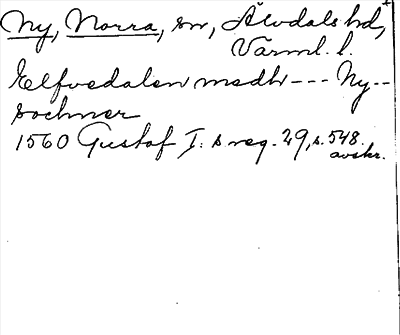 Ny, Norra, sn, Älvdals hd,
Värml. l.
Elfvedalen medh --- Ny --
sochner
1560 Gustaf I:s reg. 29, s. 548.
avskr.